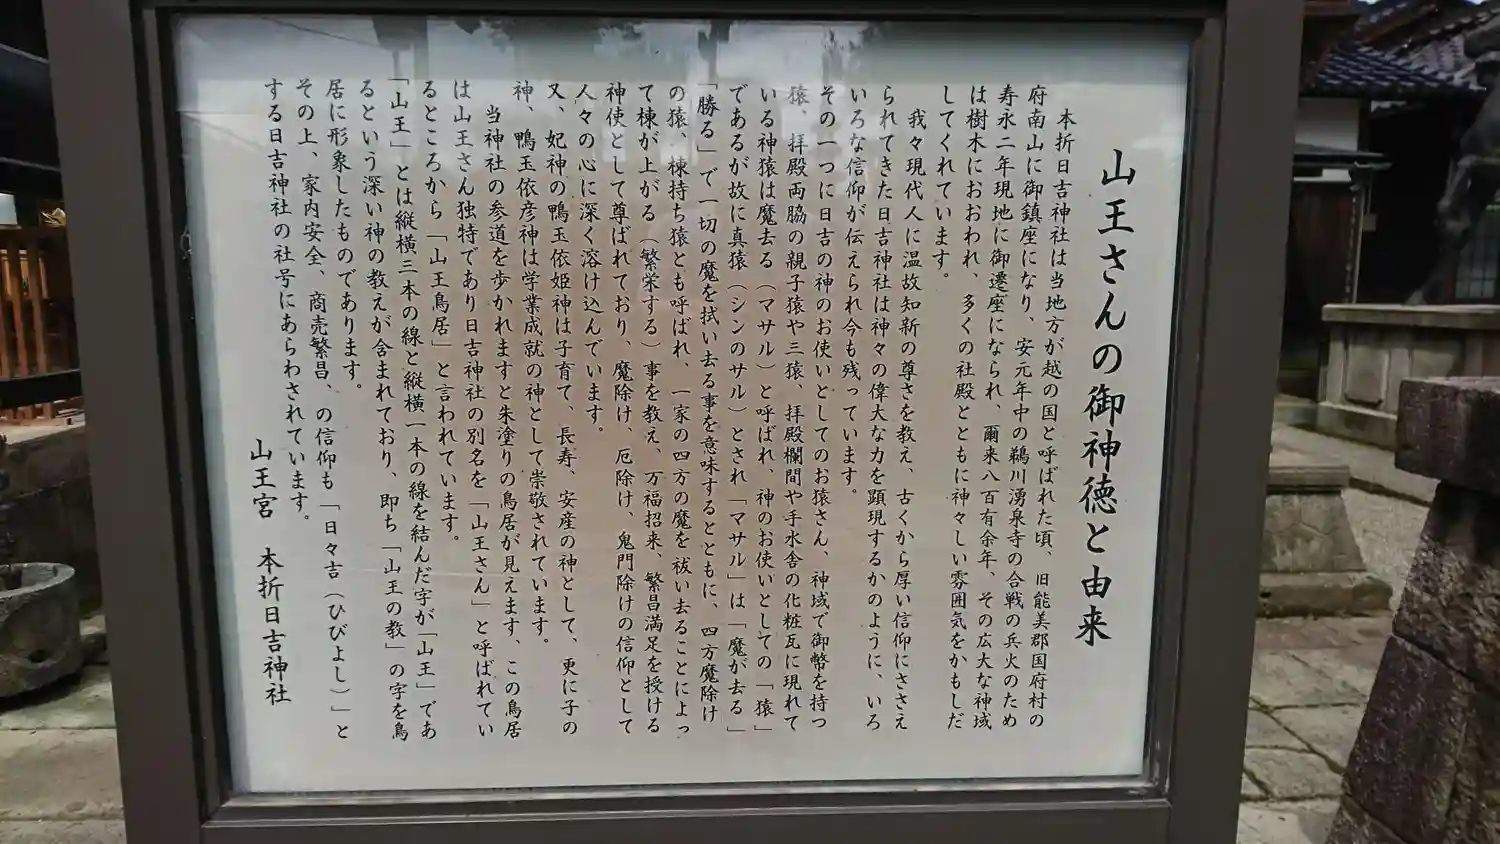 山王さんの御神徳と由来
本折日吉神社は当地方が越の国と呼ばれた頃、旧能美郡国府村の
府南山に御鎮座になり、安元年中の鵜川湧泉寺の合戦の兵火のため
寿永二年現地に御遷座になられ、爾来八百有余年、その広大な神域
は樹木におおわれ、多くの社殿とともに神々しい雰囲気をかもしだ
してくれています。
我々現代人に温故知新の尊さを教え、古くから厚い信仰にささえ
られてきた日吉神社は神々の偉大な力を顕現するかのように、いろ
いろな信仰が伝えられ今も残っています。
その一つに日吉の神のお使いとしてのお猿さん、神域で御幣を持つ
猿、拝殿両脇の親子猿や三猿、拝殿欄間や手水舎の化粧瓦に現れて
いる神猿は魔去る（マサル）と呼ばれ、神のお使いとしての「猿」
であるが故に真猿（シンのサル）とされ「マサル」は「魔が去る」
「勝る」で一切の魔を拭い去る事を意味するとともに、四方魔除け
の猿、棟持ち猿とも呼ばれ、一家の四方の魔を祓い去ることによっ
て棟が上がる（繁栄する）事を教え、万福招来、繁昌満足を授ける
神使として尊ばれており、魔除け、厄除け、鬼門除けの信仰として
人々の心に深く溶け込んでいます。
又、妃神の鴨玉依姫神は子育て、長寿、安産の神として、更に子の
神、鴨玉依彦神は学業成就の神として崇敬されています。
当神社の参道を歩かれますと朱塗りの鳥居が見えます、この鳥居
は山王さん独特であり日吉神社の別名を「山王さん」と呼ばれてい
るところから「山王鳥居」と言われています。
「山王」とは縦横三本の線と縦横一本の線を結んだ字が「山王」であ
るという深い神の教えが含まれており、即ち「山王の教」の字を鳥
居に形象したものであります。
その上、家内安全、商売繁昌、の信仰も「日々吉（ひびよし）」と
する日吉神社の社号にあらわされています。
山王宮 本折日吉神社